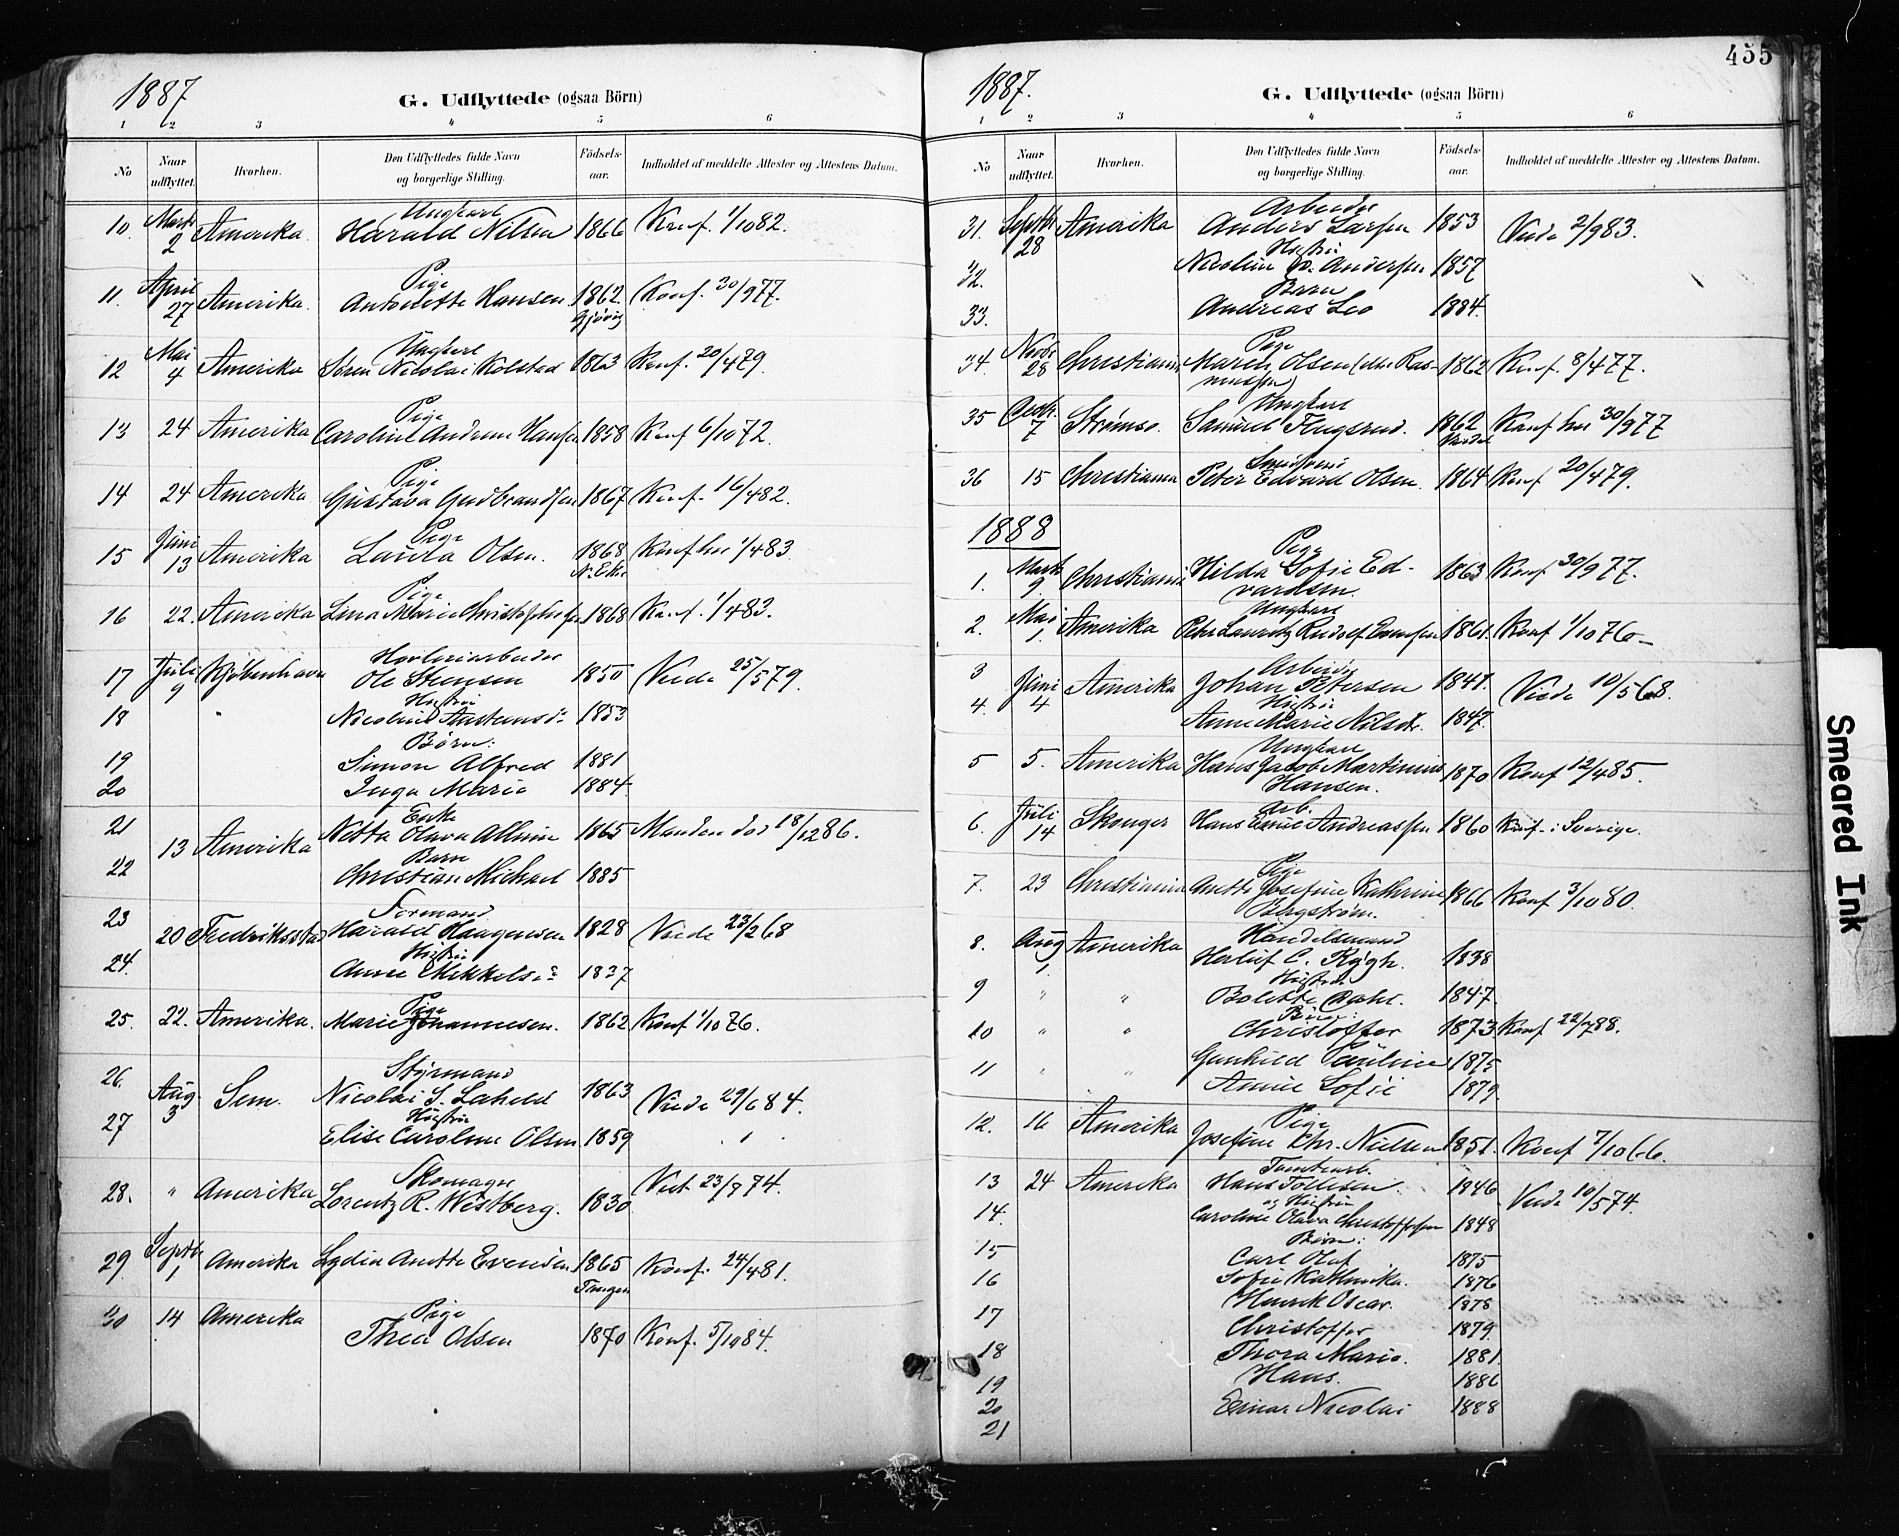 1887
G. Udflyttede (ogsaa Börn)
1 2 3 4 5 6
No
Naar udflyttet.
Hvorhen.
Den Udflyttedes fulde Navn og borgerlige Stilling.
Födsels-aar.
Indholdet af meddelte Attester og Attestens Datum.
Ungkarl
10. Marts 2 Amerika. Harald Nilsen 1866 Konf. 1/10 82.
Pige
11. April 27 Amerika. Antonette Hansen 1862 Konf. 30/9 77.
Gjövig
Ungkarl
12 Mai 4 Amerika Sören Nicolai Kolstad 1863 Konf. 20/4 79.
Pige
13 24 Amerika Caroline Andrea Hansen 1858 Konf 6/10 72.
Pige
14 24 Amerika Gustava Gudbrandsen 1867 Konf. 16/4 82.
Pige
15 Juni 13 Amerika Laura Olsen. 1868 Konf her 1/4 83.
N. Eker
Pige
16 22. Amerika Lina Marie Christophersen 1868 Konf. 1/4 83.
Høvleriarbeider
17 Juli 9 Kjöbenhavn Ole Stensen 1850 Viede 25/5 79.
Hustru
18 " Nicoline Austensdr 1853
Börn:
19 Simon Alfred 1881
20 Inga Marie 1884
Enke
21 13 Amerika Netta Olava Allum 1865 Manden död 18/12 86.
Barn
22 Christian Michael 1885
Formand
23 20 Fredriksstad Harald Haagensen 1828 Viede 23/2 68
Hustru
24. Anne Mikkelsdr 1837
Pige
25. 22. Amerika. Marie Johannesen. 1862 Konf 1/10 76.
Styrmand
26. Aug. 3 Sem. Nicolai S. 1863 Viede 29/6 84.
Hustru
27 Elise Caroline Olsen 1859 "
Skomager
28. " Amerika Lorentz R. Westberg. 1830 Viet 23/9 74.
29 Septbr 1 Amerika Lydia Anette Evensen 1865 Konf. 24/4 81.
Tangen
Pige
30 14 Amerika Thea Olsen 1870 Konf. 5/10 84.
455
1887.
G. Udflyttede (ogsaa Börn)
1 2 3 4 5 6
No
Naar udflyttet.
Hvorhen.
Den Udflyttedes fulde Navn og borgerlige Stilling.
Födsels-aar.
Indholdet af meddelte Attester og Attestens Datum.
Arbeider
31. Septbr 28 Amerika Anders Larsen 1853 Viede 2/9 83.
Hustru
32. Nicoline Andersen 1857
Barn
33. Andreas Leo 1884.
Pige
34. Novbr 28 Christiania Maren Olsen (eller Ras- 1862 Konf. 8/4 77.
mussen)
Ungkarl
35 Decbr. 7 Strömsö. Samuel Flugsrud. 1862 Konf her 30/9 77
Smedsvend
36 15 Christiania Peter Edvard Olsen. 1864 Konf 20/4 79.
1888
Pige
1. Marts 9 Christiania Hilda Sofie Ed- 1863 Konf 30/9 77.
vardsen.
Ungkarl
2. Mai 1 Amerika Peter Lauritz Rudolf Evensen 1861. Konf 1/10 76
Arbeider
3 Juni 4 Amerika Johan Petersen 1841. Viede 10/5 68.
Hustru
4. Anne Marie Nilsdr. 1847.
Ungkarl
5 5. Amerika Hans Jacob Martinius 1870 Konf 12/4 85.
Hansen.
Arb.
6. Juli 14 Skouger Hans Emil Andreassen 1860 Konf. i Sverige.
Pige
7. 23 Christiania Anette Josefine Kathrine 1866 Konf 3/10 80.
Bergström.
Handelsmand
8. Aug 1 Amerika Herluf C. Rygh. 1838
Hustru
9 " " Bolette Dahl. 1847.
Börn:
10 " " Christoffer 1873 Konf 22/7 88.
11 " " Gunhild Pauline 1875
Annie Sofie 1879.
Pige
12. 16 Amerika Josefine Chr. Nielsen 1851. Konf 7/10 66.
Tomtearb.
13 24 Amerika Hans Tollefsen. 1846 Viede 10/5 74.
og Hustru
14. Caroline Olava Christoffersen 1848
Börn:
15 Carl Olaf 1875
16 Sofie Kathinka. 1876
Henrik Oscar. 1878
17 Christoffer 1879.
18 Thora Marie. 1881.
19 Hans. 1886
20 Einar Nicolai 1888
21
Smeared Ink